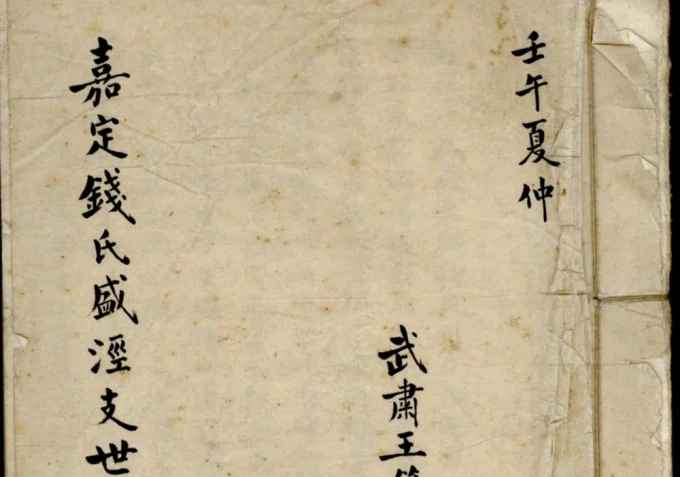 壬午夏仲
武肅王
嘉定錢氏盛涇支世